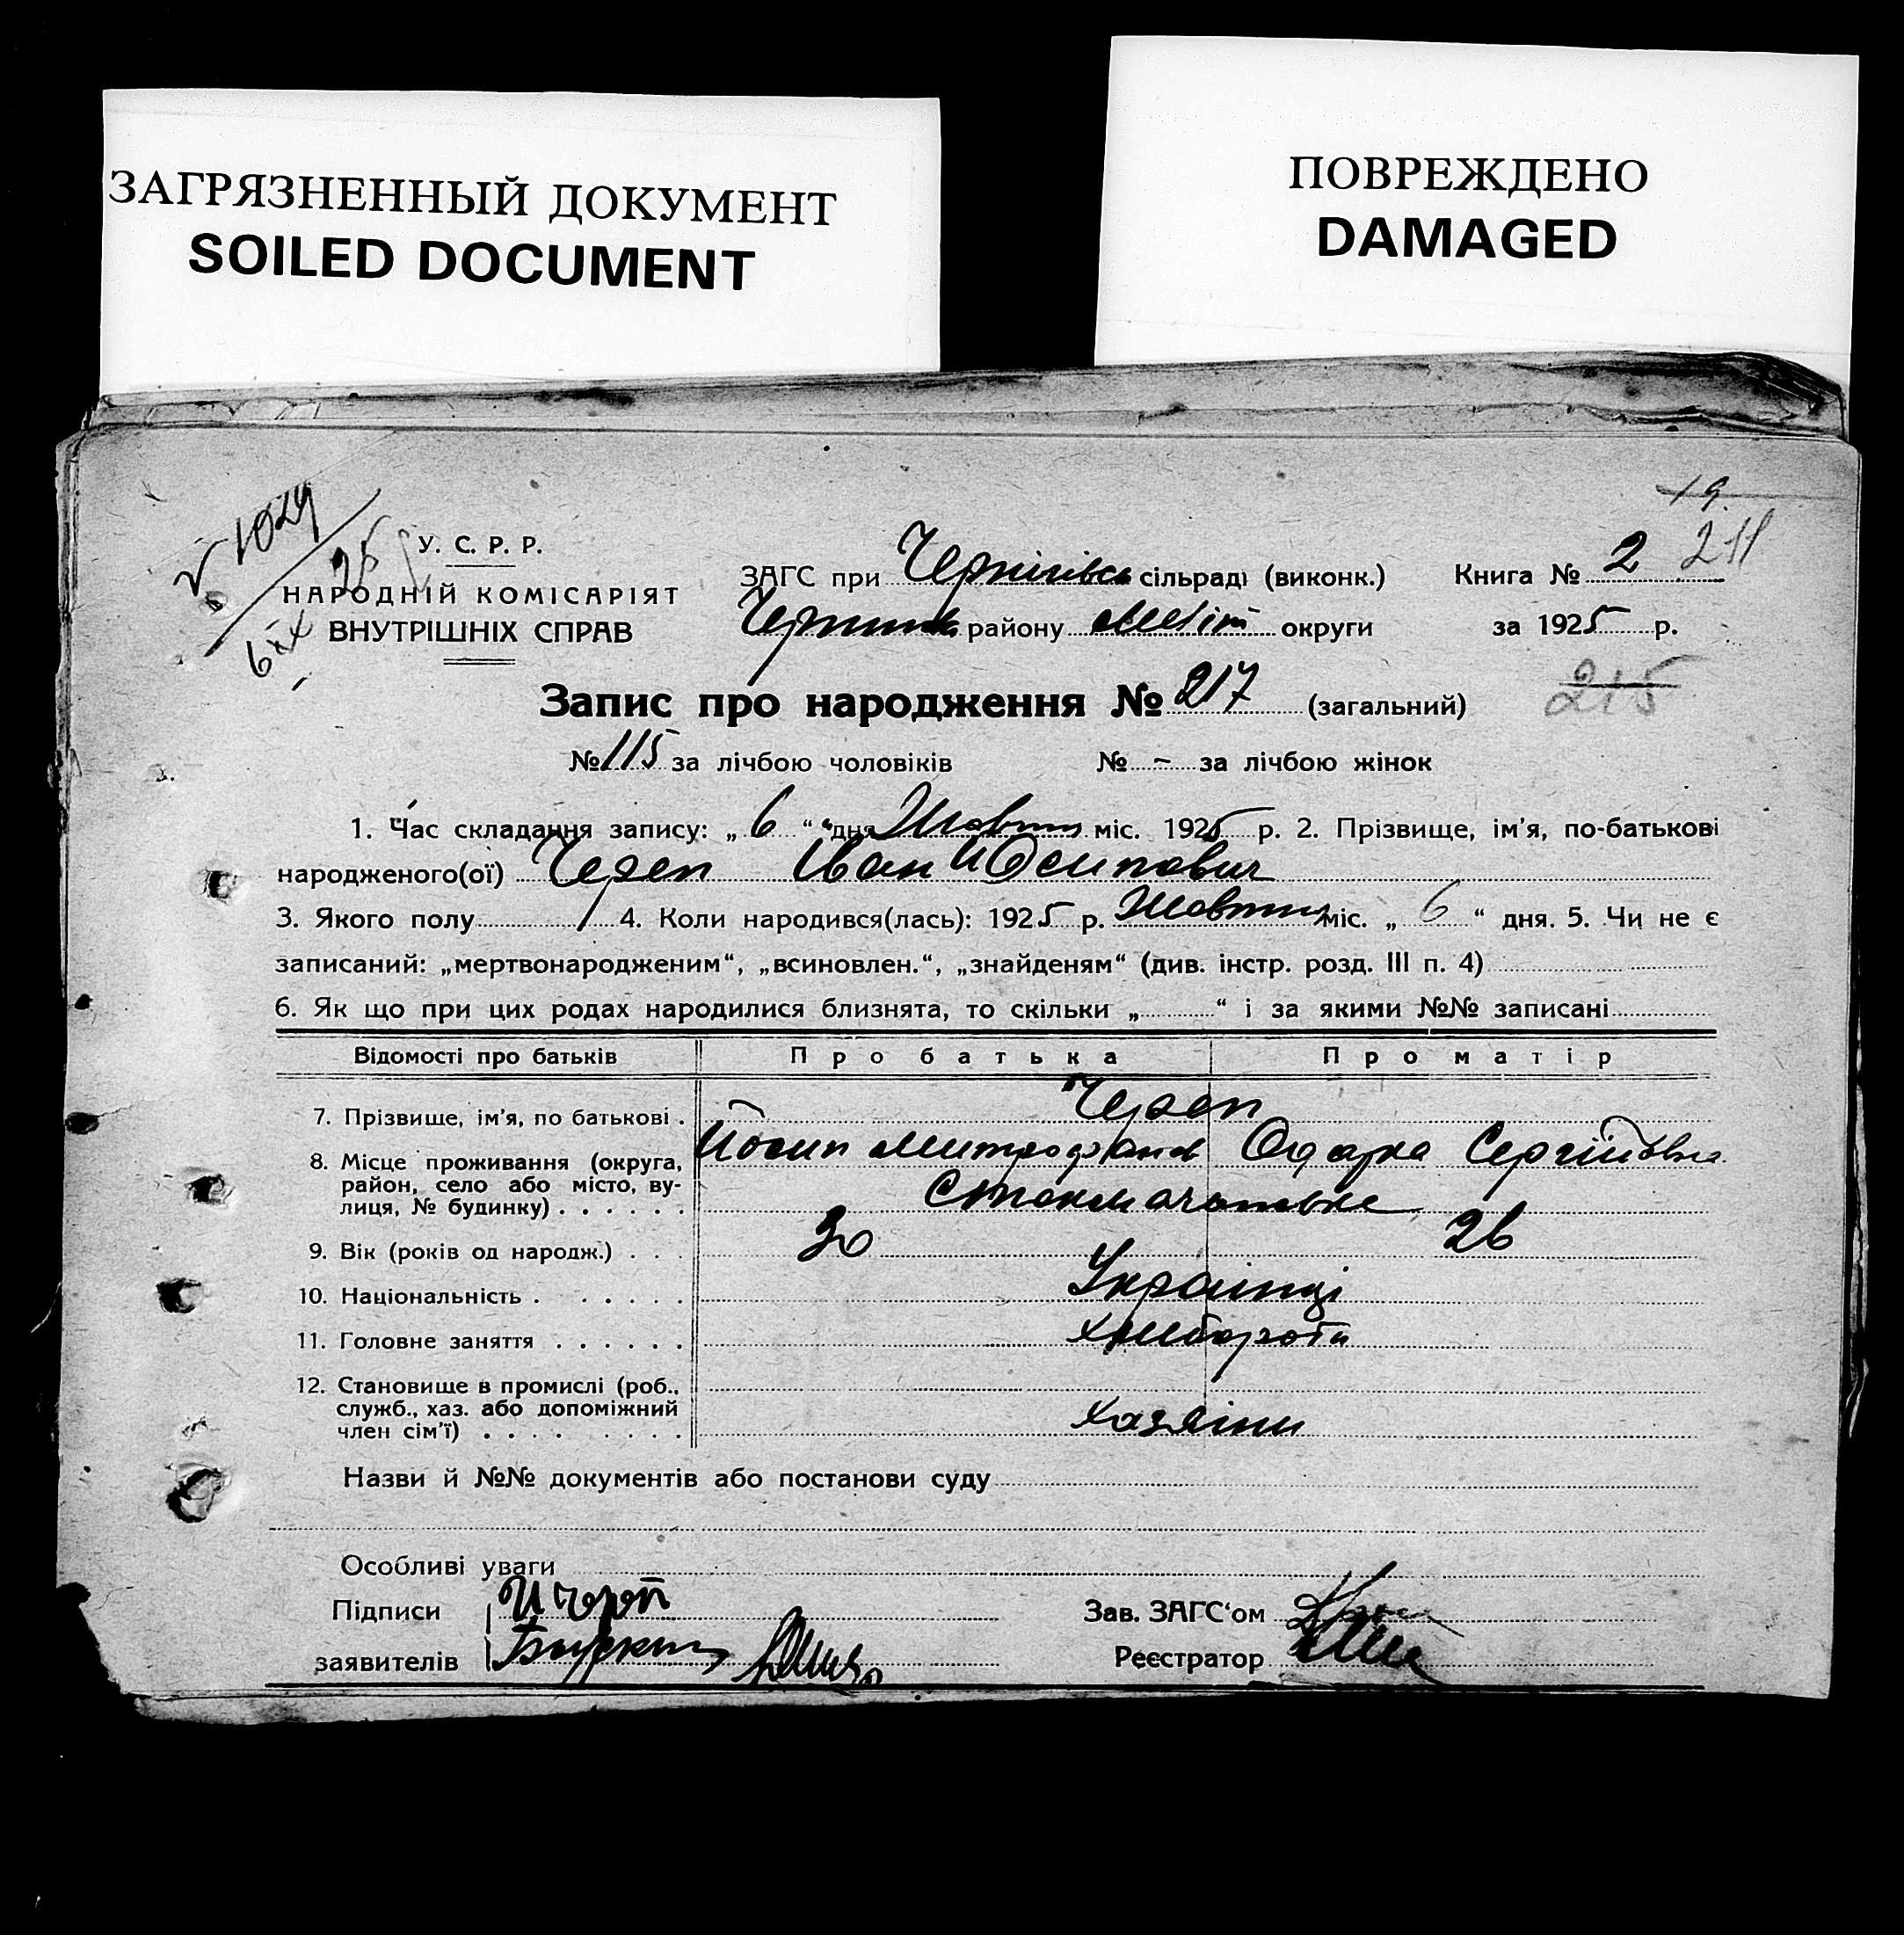 ЗАГРЯЗНЕННЫЙ ДОКУМЕНТ
SOILED DOCUMENT
ПОВРЕЖДЕНО
DAMAGED
1029
25
19
211
У. С. Р. Р.
НАРОДНІЙ КОМІСАРІЯТ
ВНУТРІШНІХ СПРАВ
ЗАГС при Чернігівськ сільраді (виконк.) Книга № 2
району округи за 1925 р.
Запис про народження № 217 (загальний) 215
№ 115 за лічбою чоловіків № – за лічбою жінок
1. Час складання запису: „ 6 “ дня Жовтня міс. 1925 р. 2. Прізвище, ім'я, по-батькові
народженого(ої) Череп Іван Йосипович
3. Якого полу 4. Коли народився(лась): 1925 р. Жовтня міс. „ 6 “ дня. 5. Чи не є
записаний: „мертвонародженим“, „всиновлен.“, „знайденям“ (див. інстр. розд. III п. 4)
6. Як що при цих родах народилися близнята, то скільки „ “ і за якими №№ записані
Відомості про батьків Про батька Про матір
7. Прізвище, ім'я, по батькові . Череп
Йосип Митрофанов Одарка Сергіївна
8. Місце проживання (округа,
район, село або місто, ву-
лиця, № будинку) . . . . . .
9. Вік (років од народж.) . . . 30 26
10. Національність . . . . . . Українці
11. Головне заняття . . . . . . Хлібороби
12. Становище в промислі (роб.,
служб., хаз. або допоміжний
член сім'ї) . . . . . . . . Хазяіни
Назви й №№ документів або постанови суду
Особливі уваги
Підписи И Череп Зав. ЗАГС'ом
заявителів Реєстратор